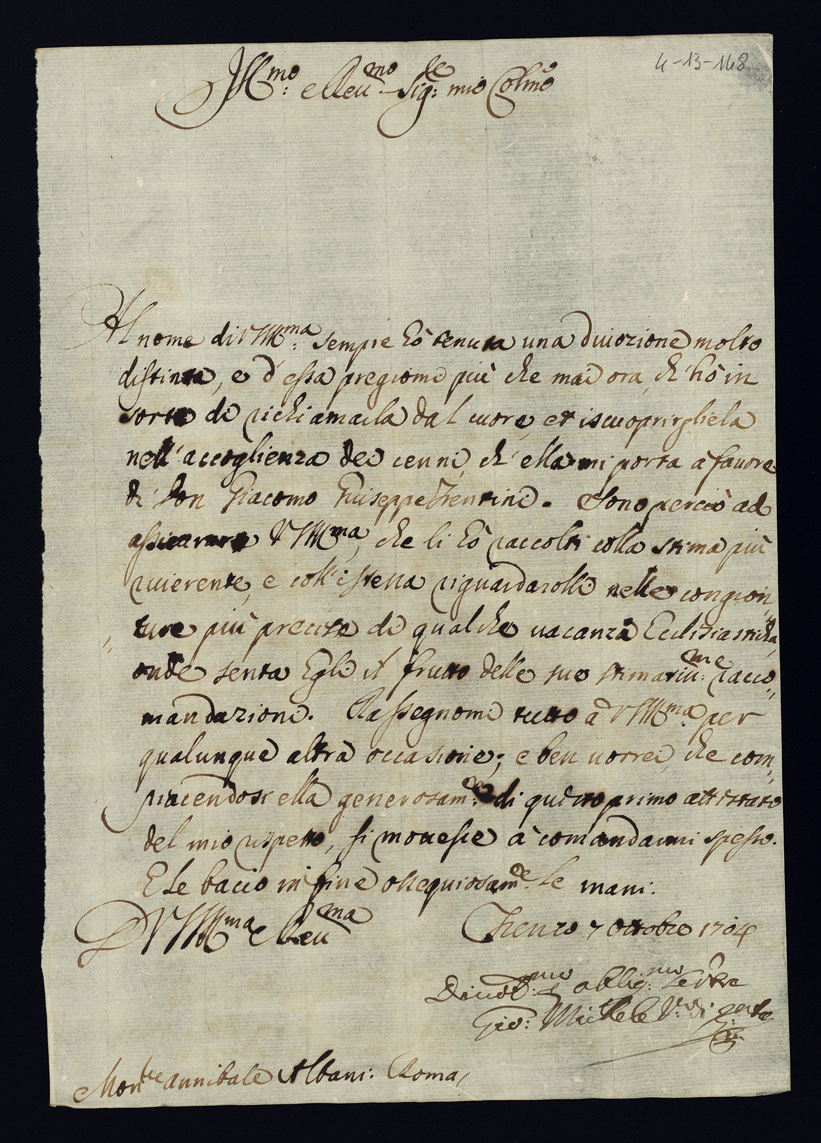 4-13-168
Ill.mo e Reu.mo Sig.re mio Colmo
Al nome di V Ill.ma sempre hò tenuta una diuozione molto
distinta, e d'essa pregiomi più che mai ora, ch'hò in
sorte di richiamarla dal cuore, et iscuoprirgliela
nell'accoglienza dei cenni, ch'ella mi porta à fauore
di Don Giacomo Giuseppe Trentini. Sono perciò ad
assicurare V Ill.ma, che li hò raccolti colla stima più
riuerente, e coll'istessa riguardarolli nelle congion,,
,,ture più precise di qualche uacanza Ecclesiastica,
onde senta Egli il frutto delle sue stimatiss.me racco,,
mandazioni. Rassegnomi tutto à V Ill.ma per
qualunque altra occasione; e ben uorrei che com,,
piacendosi ella generosam.te di questo primo attestato
del mio rispetto, si mouesse à comandarmi spesso.
E le bacio in fine ossequiosam.te le mani.
D V Ill.ma e Reu.ma
Trento 7 Ottobre 1704
Diuot.mo et obblig.mo Serure
Gio: Michele V.o di Trento
Mon.re Annibale Albani: Roma/